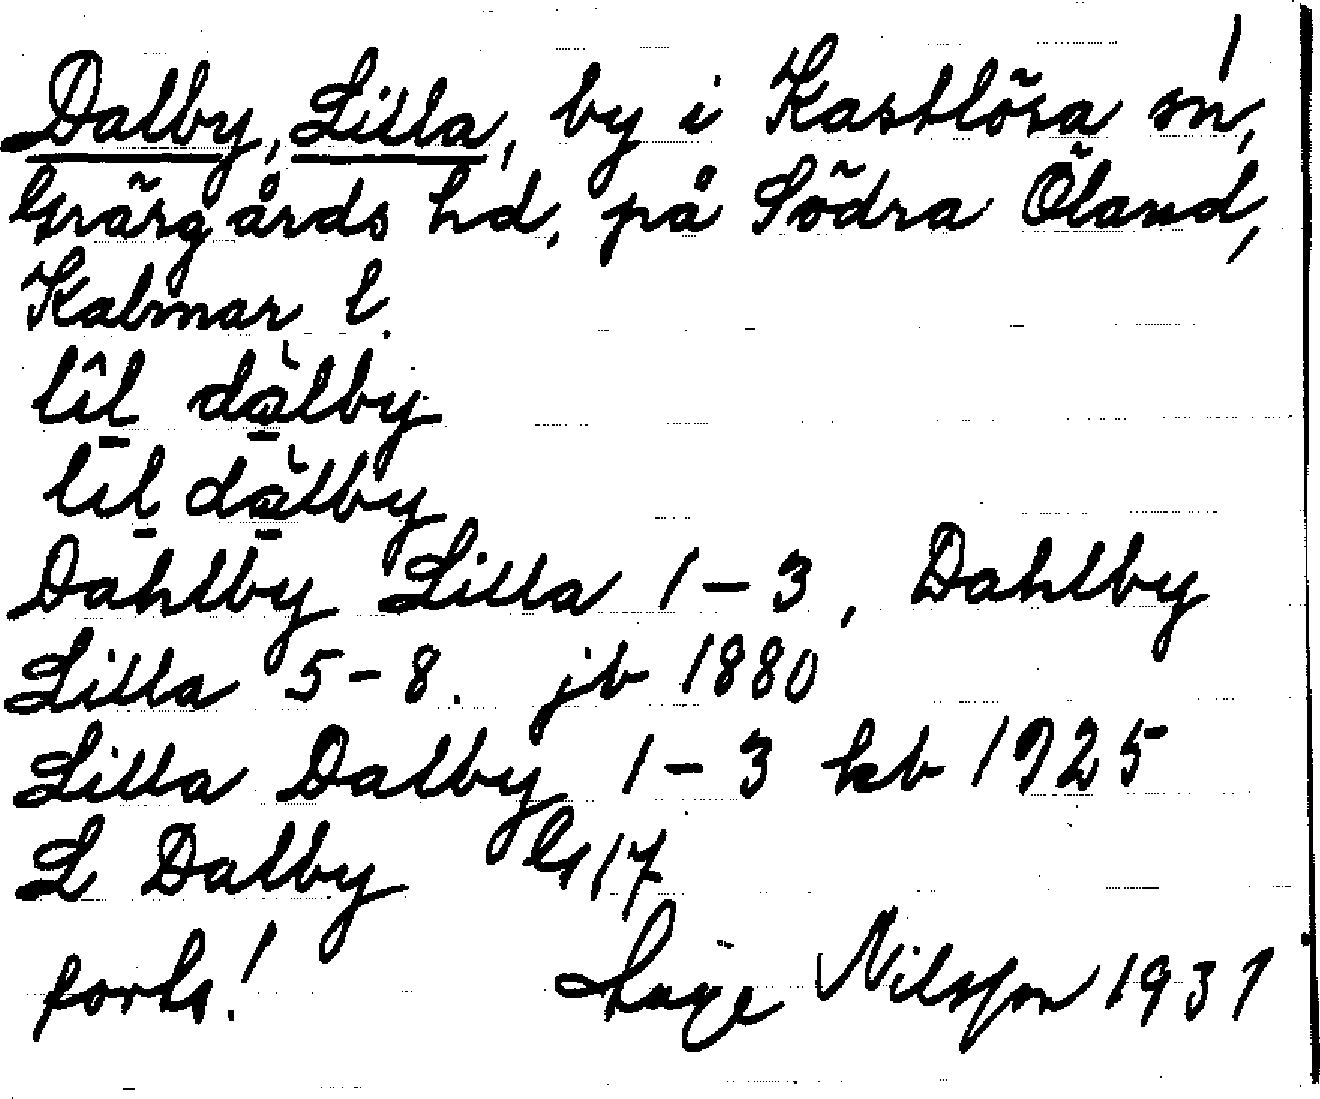 Dalby, Lilla, by i Kastlösa sn,
Gräsgårds hd, på Södra Öland,
Kalmar l.
lîl dàlby
lil dàlby
Dahlby Lilla 1-3, Dahlby
Lilla 5-8. jb 1880
Lilla Dalby 1-3 kb 1925
L Dalby G 17
forts! Nilsson 1937